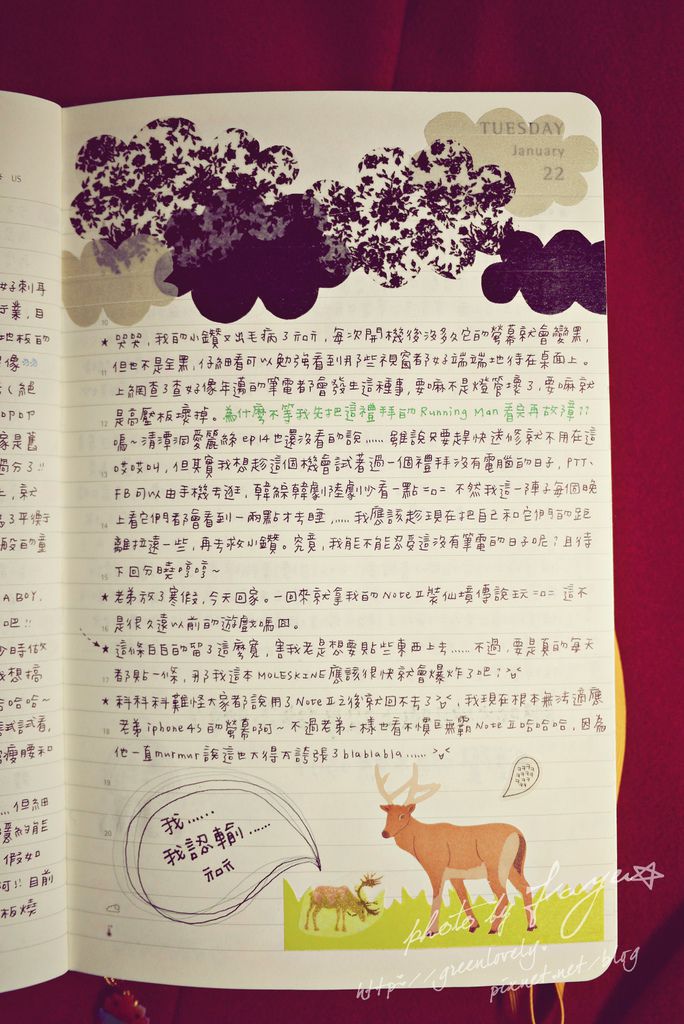 US
TUESDAY
January
22
10
★ 哭哭,我的小鑽又出毛病了π□π,每次開機後沒多久它的螢幕就會變黑,
但也不是全黑,仔細看可以勉強看到那些視窗都好端端地待在桌面上。
11
上網查了查好像年邁的筆電都會發生這種事,要嘛不是燈管壞了,要嘛就
12
是高壓板壞掉。為什麼不等我先把這禮拜的Running Man看完再故障??
嗚~清潭洞愛麗絲ep14也還沒看的說......雖說只要趕快送修就不用在這
13
哎哎叫,但其實我想趁這個機會試著過一個禮拜沒有電腦的日子,PTT、
FB可以由手機去逛,韓綜韓劇陸劇少看一點=D=不然我這一陣子每個晚
14
上看它們都會看到一兩點才去睡,......我應該趁現在把自己和它們的距
離拉遠一些,再去救小鑽。究竟,我能不能忍受這沒有筆電的日子呢?且待
15
下回分曉哼哼~
★ 老弟放了寒假,今天回家。一回來就拿我的Note II裝仙境傳說玩=D=這不
16
是很久遠以前的遊戲嗎囧。
★ 這條白白的留了這麼寬,害我老是想要貼些東西上去......不過,要是真的每天
17
都貼一條,那我這本MOLESKINE應該很快就會爆炸了吧?>"<
★ 科科科難怪大家都說用了Note II之後就回不去了>"<,我現在根本無法適應
18
老弟iphone4s的螢幕啊~不過老弟一樣也看不慣巨無霸Note II哈哈哈,因為
他一直murmur說這也大得太誇張了blablabla......>"<
19
20
我......
我認輸......
π□π
photo by
http://greenlovely.
pixnet.net/blog